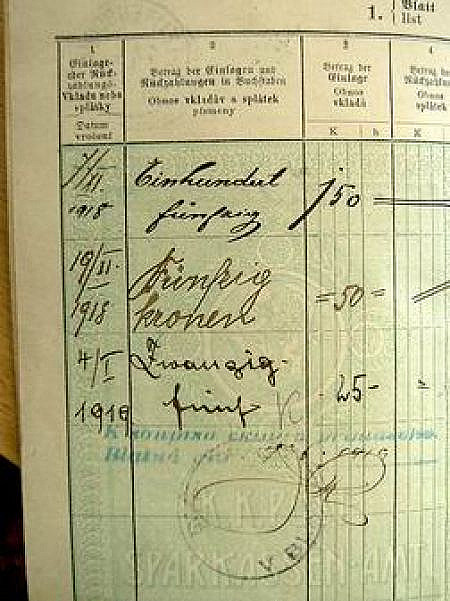 1. Blatt
list
1 2 3 4
Einlage-
oder Rück-
zahlungs-
Vkladu nebo
splátky
Datum
vrácení
Betrag der Einlagen und
Rückzahlungen in Buchstaben
Obnos vkladův a splátek
písmeny
Betrag der
Einlage
Obnos
vkladů
K h
Betrag der
Obnos
splátek
K
7/XI
1918
Einhundert
fünfzig
150 =
19/II.
1918
Fünfzig
kronen
=50=
4/I
1919
Zwanzig-
fünf K
25-
K.K.P.
SPARKASSEN-AMT